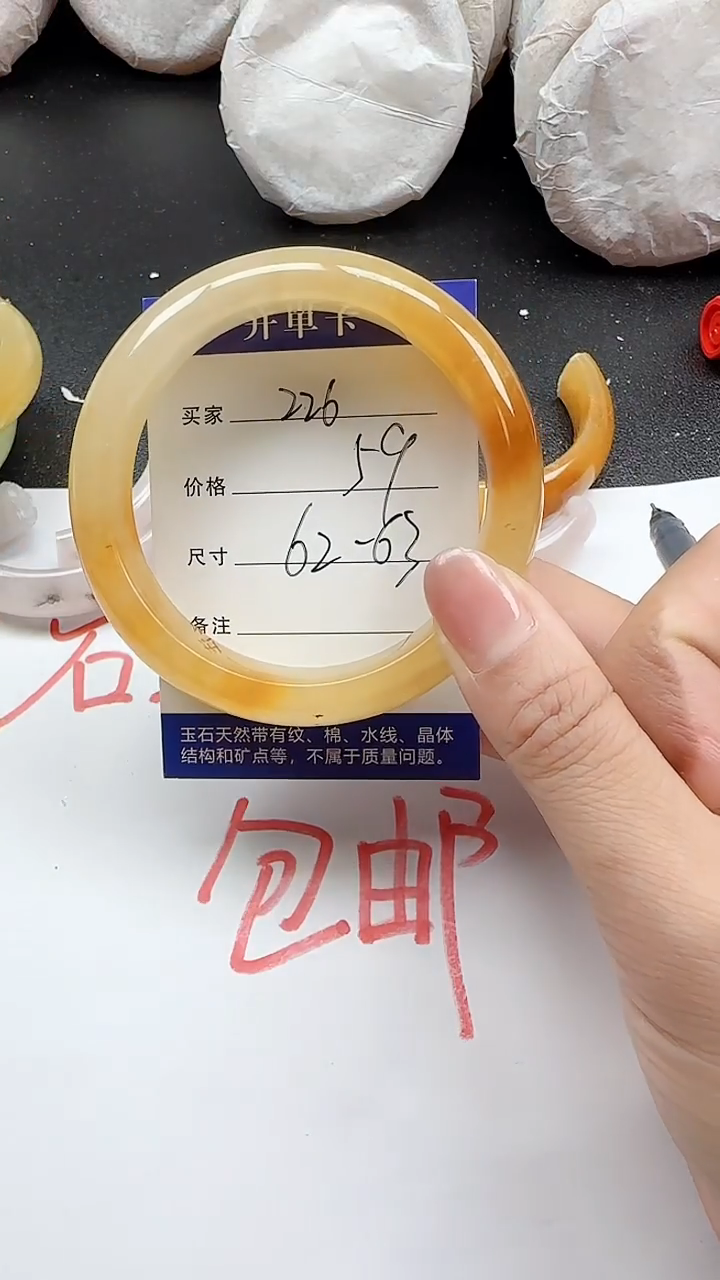 开单卡
买家 226
价格 59
尺寸 62-63
备注
玉石天然带有纹、棉、水线、晶体
结构和矿点等，不属于质量问题。
石
包邮